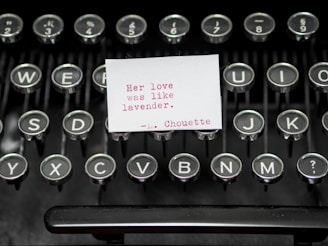 2 3 4 5 6 7 8 9
W E U I O
S D J K
Y X C V B N M ?
Her love
was like
lavender.
—L. Chouette